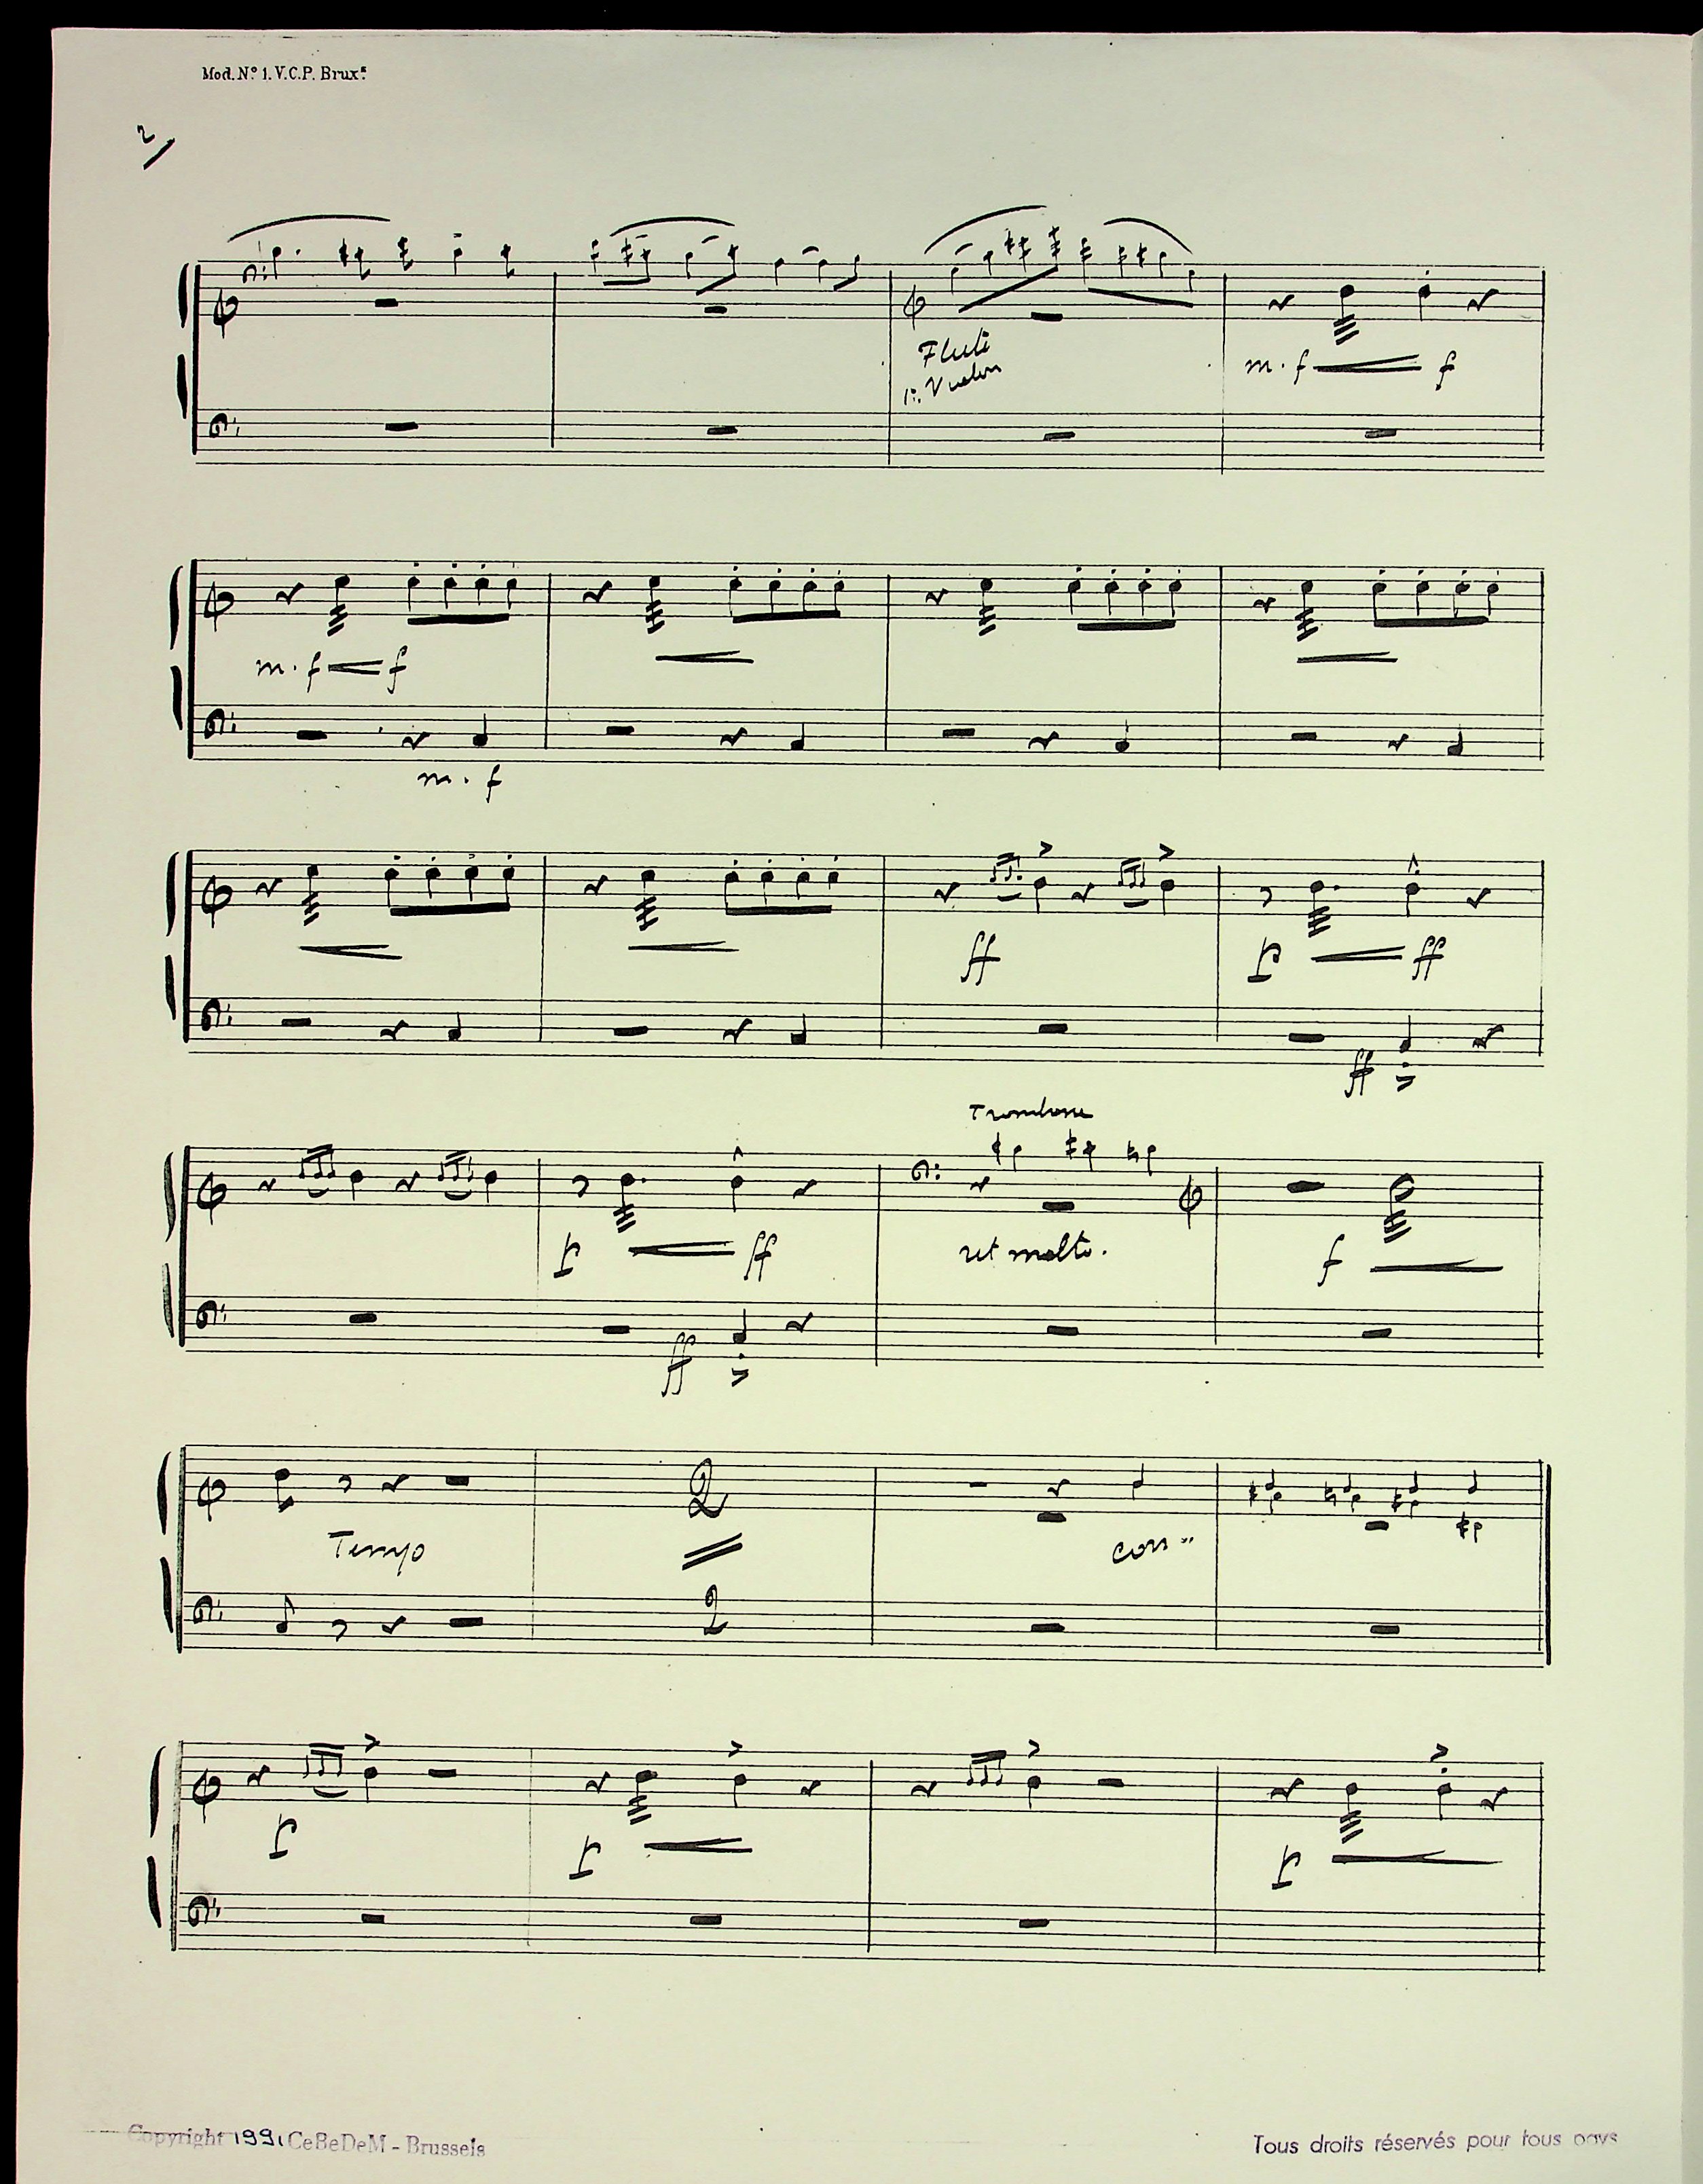 Mod. Nº 1. V.C.P. Brux.
2/
Flute
m. f f
m. f f
m. f
ff p ff
ff
Trombone
p ff rit molto. f
ff
2
Tempo con
2
p p p
Copyright 1991 CeBeDeM - Brussels
Tous droits réservés pour tous pays